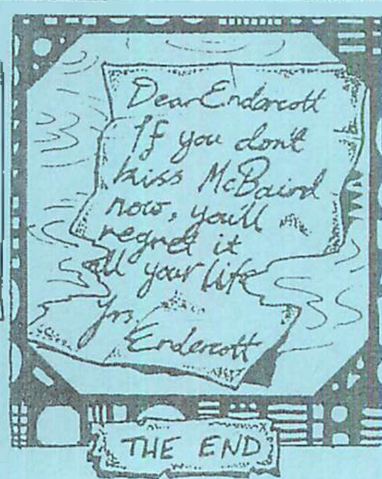 Dear Endarcott
If you don't
kiss McBaird
now, you'll
regret it
all your life
Yrs,
Endercott
THE END